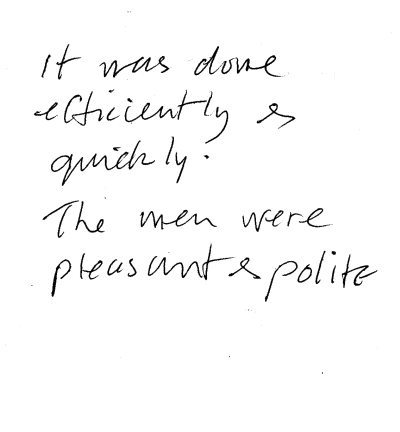 It was done
efficiently &
quickly.
The men were
pleasant & polite